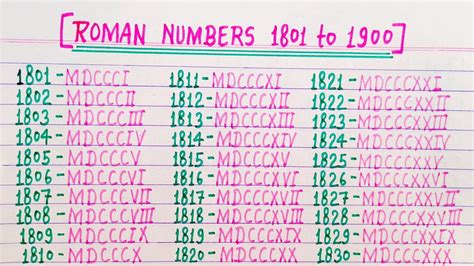 [ROMAN NUMBERS 1801 to 1900]
1801-MDCCCI 1811-MDCCCXI 1821-MDCCCXXI
1802-MDCCCII 1812-MDCCCXII 1822-MDCCCXXII
1803-MDCCCIII 1813-MDCCCXIII 1823-MDCCCXXIII
1804-MDCCCIV 1814-MDCCCXIV 1824-MDCCCXXIV
1805-MDCCCV 1815-MDCCCXV 1825-MDCCCXXV
1806-MDCCCVI 1816-MDCCCXVI 1826-MDCCCXXVI
1807-MDCCCVII 1817-MDCCCXVII 1827-MDCCCXXVII
1808-MDCCCVIII 1818-MDCCCXVIII 1828-MDCCCXXVIII
1809-MDCCCIX 1819-MDCCCXIX 1829-MDCCCXXIX
1810-MDCCCX 1820-MDCCCXX 1830-MDCCCXXX